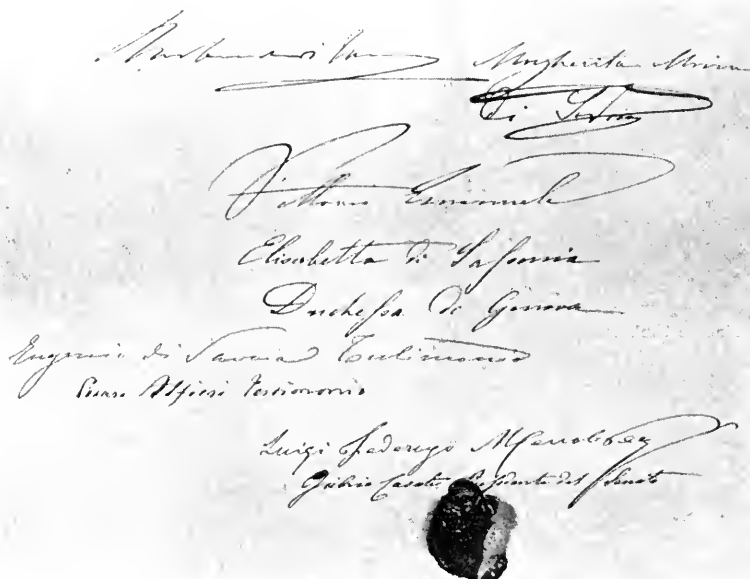 Umberto di Savoia Margherita Maria
di Savoia
Vittorio Emanuele
Elisabetta di Sassonia
Duchessa di Genova
Eugenio di Savoia Testimonio
Cesare Alfieri Testimonio
Luigi Federigo Menabrea
Gabrio Casati Presidente del Senato